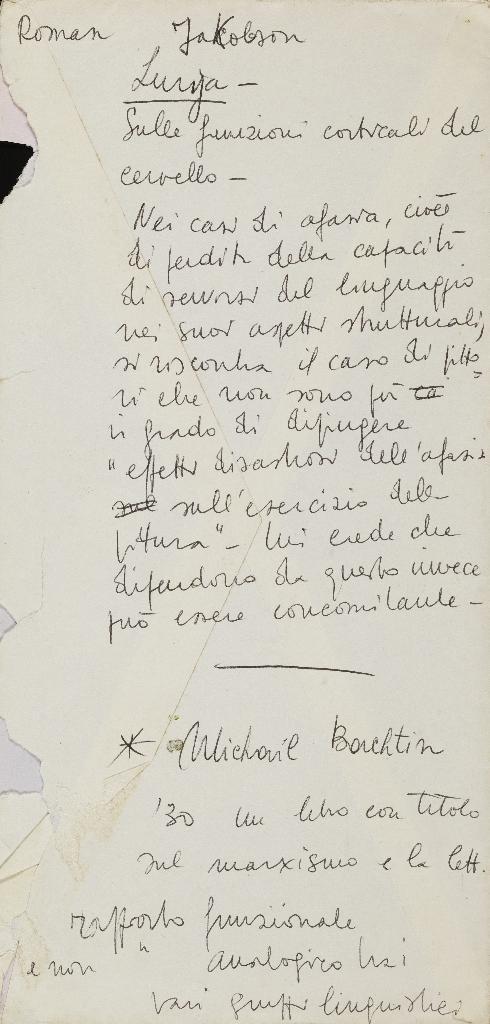 Roman Jakobson
Lurija –
Sulle funzioni corticali del
cervello –
Nei casi di afasia, cioè
di perdita della capacità
di servirsi del linguaggio
nei suoi aspetti strutturali,
si riscontra il caso di pitto-
ri che non sono più ca
in grado di dipingere
"effetti disastrosi dell'afasia
sul sull'esercizio della
pittura" – Lui crede che
dipendono da questo invece
può essere concomitante –
* Michail Bachtin
'30 un libro con titolo
sul marxismo e la lett.
rapporto funzionale
e non " analogico tra i
vari gruppi linguistici